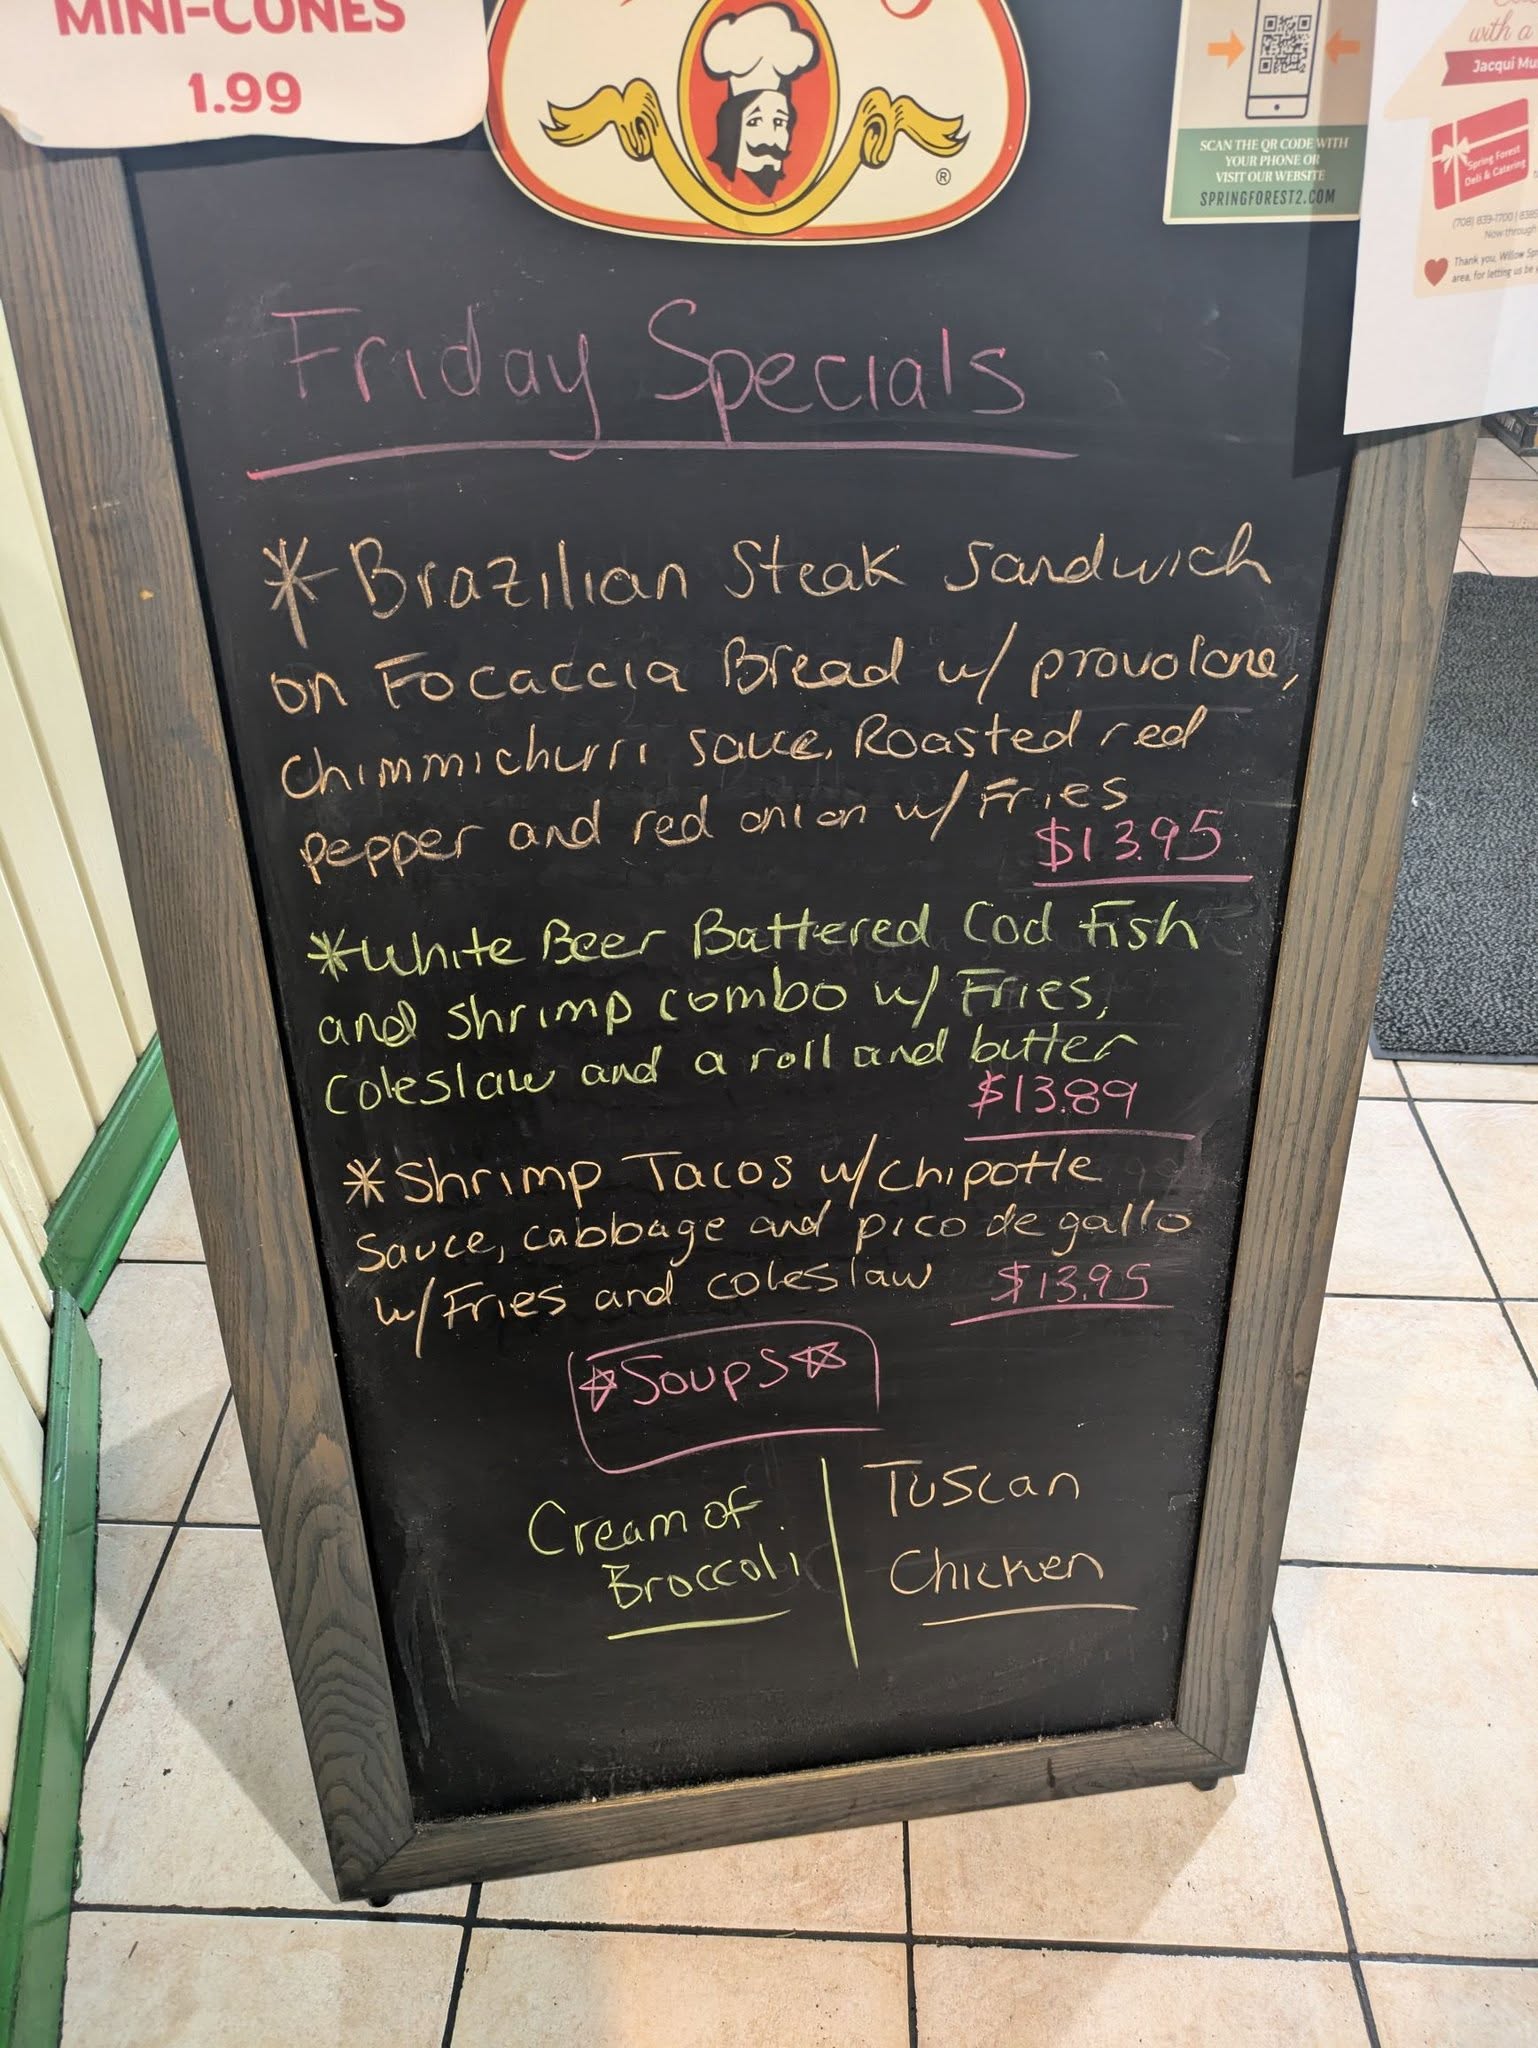 MINI-CONES
1.99
®
SCAN THE QR CODE WITH
YOUR PHONE OR
VISIT OUR WEBSITE
SPRINGFOREST2.COM
with a
Jacqui
Spring Forest
Deli & Catering
(708) 839-1700 |
Now through
Thank you, Willow
area, for letting us be
Friday Specials
*Brazilian Steak Sandwich
on Focaccia Bread w/ provolone,
Chimmichurri sauce, Roasted red
pepper and red onion w/ Fries
$13.95
*White Beer Battered Cod Fish
and shrimp combo w/ Fries,
coleslaw and a roll and butter
$13.89
*Shrimp Tacos w/chipotle
Sauce, cabbage and pico de gallo
w/Fries and coleslaw $13.95
Soups
Cream of
Broccoli
Tuscan
Chicken